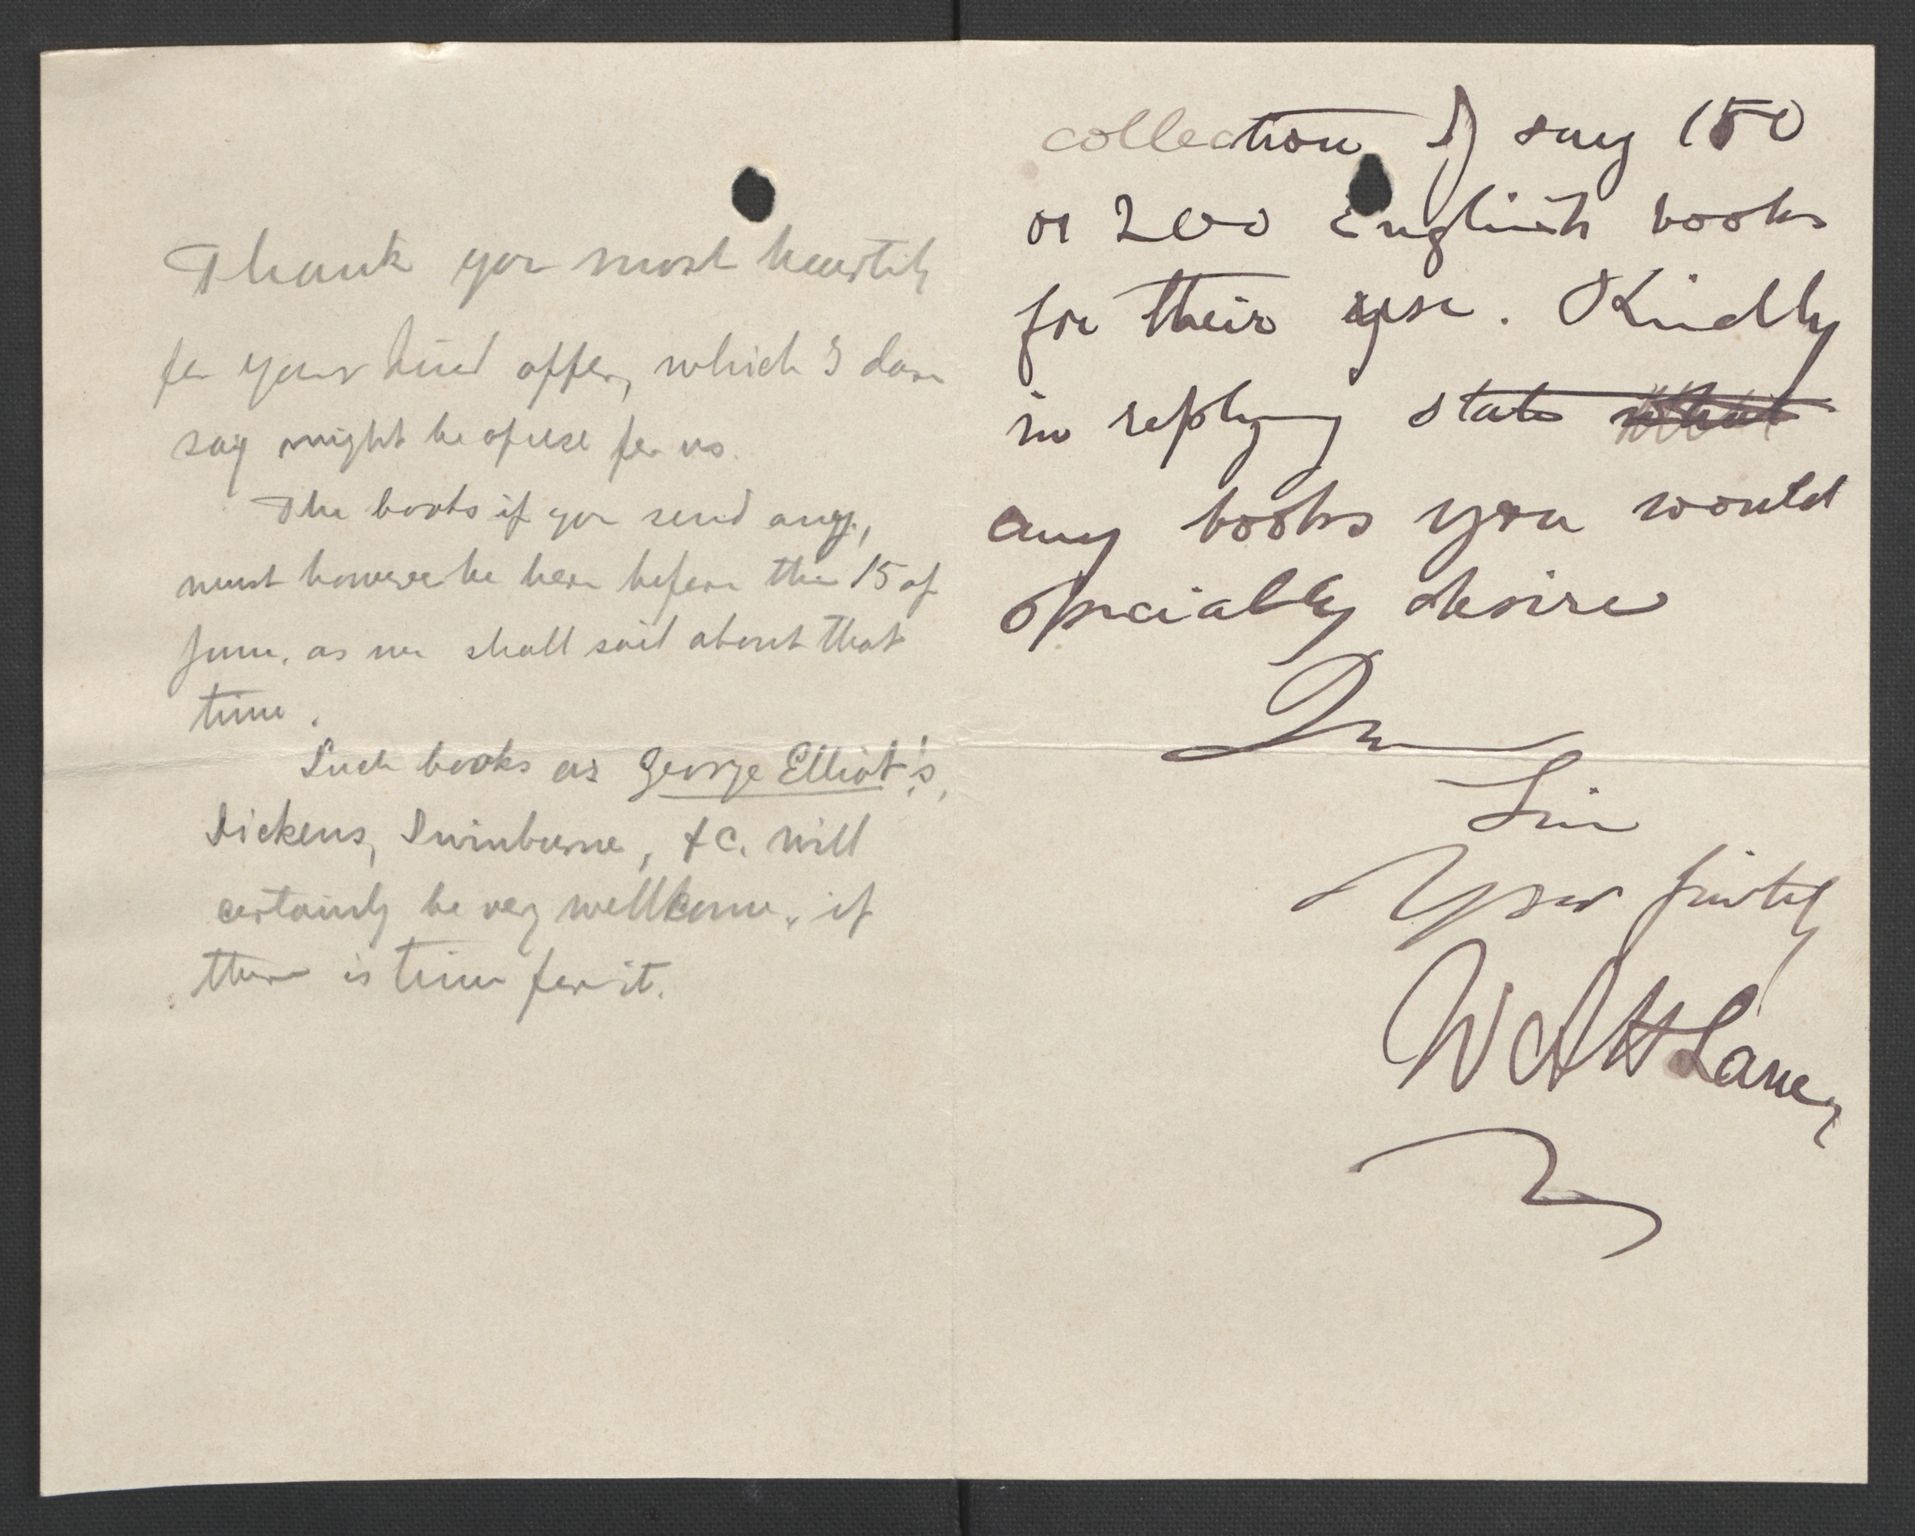 Thank you most heartily
for your kind offer, which I dare
say might be of use for us.
The books if you send any,
must however be here before the 15 of
June. as we shall sail about that
time.
Such books as George Elliot's,
Dickens, Swinburne, &c. will
certainly be very wellkome, if
there is time for it.
collection of say 150
or 200 English books
for their use. Kindly
in replying state what
any books you would
specially desire
I am
Sir
Yours faithfully